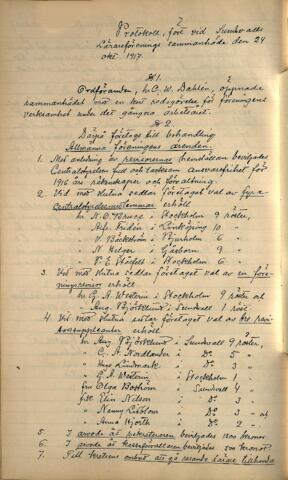 Protokoll, fört vid Sundsvalls
Lärareförenings sammanträde den 24
okt 1917.
§ 1.
Ordföranden, hr C. W. Dahlén, öppnade
sammanträdet med en kort redogörelse för föreningens
verksamhet under det gångna arbetsåret.
§ 2.
Därpå företogs till behandling
Allmänna föreningens ärenden.
1. Med anledning av revisorernas hemställan beviljades
Centralstyrelsen full och tacksam ansvarsfrihet för
1916 års räkenskaper och förvaltning
2. Vid med slutna sedlar företaget val av fyra
centralstyrelsemedlemmar erhöll
hr N. O. Bruce i Stockholm 9 röster,
Alfr. Fridén i Linköping 10 "
V. Bäckström i Njurholm 6 "
N. Helger i Gävle 9 "
P. E. i Stockholm 6 "
3. Vid med slutna sedlar företaget val av en före-
ningsrevisor erhöll
hr G. A. Westerin i Stockholm 9 röster och
Aug. Björklund i Sundsvall 1 röst
4. Vid med slutna sedlar företaget val av tre revi-
sorssuppleanter erhöll
hr Aug. Björklund i Sundsvall 9 röster,
C. A. Nordlander i Do 5 "
Hugo Lindmark i Do "
G. A. Westerin i Stockholm
fru Elga Boström i Sundsvall 4 "
frk. Elin Nilson i Do 3 "
Nanny Lidblom i Do 3 " och
Anna Hjorth i Do 2 "
5. I arvode åt sekreteraren beviljades 1200 kronor
6. I arvode åt kassaförvaltaren beviljades 500 kronor
7. Till kretsens ombud att gå